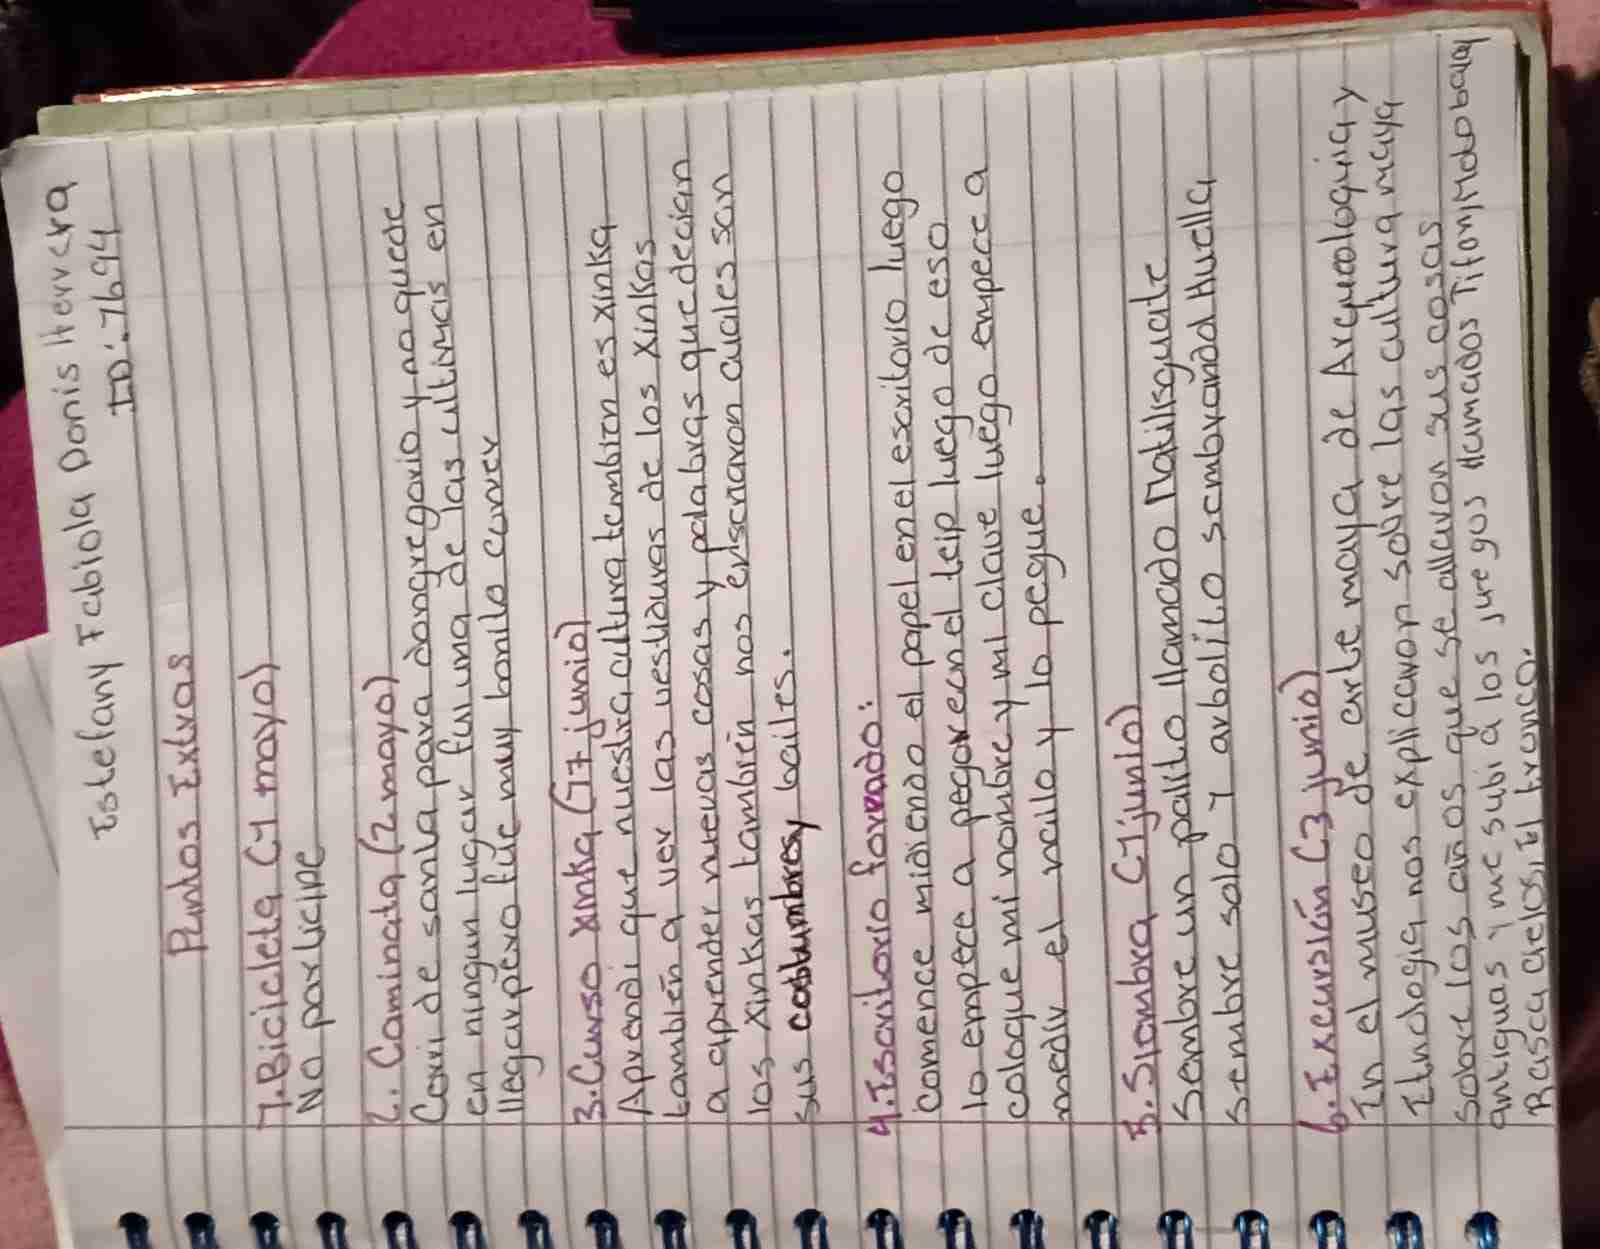 Estefany Fabiola Donis Herrera
ID:7694
Puntos Extras
1. Bicicleta (1 mayo)
No participe
2. Caminata (2 mayo)
Corri de santa para don gregorio y no quede
en ningun lugar fui una de las ultimas en
llegar pero fue muy bonito correr
3. Curso xinka (17 junio)
Aprendi que nuestra cultura tambien es xinka
también a ver las vestiduras de los xinkas
a aprender nuevas cosas y palabras que decian
los xinkas también nos enseñaron cuales son
sus costumbres y bailes.
4. Escritorio forrado:
Comence midiendo el papel en el escritorio luego
lo empece a pegar con el teip luego de eso
coloque mi nombre y mi clave luego empece a
medir el nailo y lo pegue.
5. Siembra (1 junio)
Sembre un palito llamado Matilisguate
sembre solo 1 arbolito sembrando Huella
6. Excursión (3 junio)
En el museo de arte maya de Arqueologia y
Etnologia nos explicaron sobre las cultura maya
sobre los años que se allaron sus cosas
antiguas y me subi a los juegos llamados Tifon, Motobalay
Rasca cielos, El tronco.